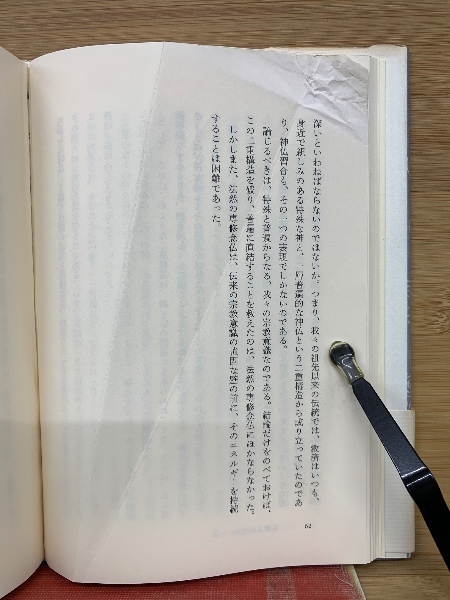 深いといわねばならないのではないか。つまり、我々の祖先以来の伝統では、救済はいつも、
身近で親しみのある特殊な神と、一層普遍的な神仏という二重構造から成り立っていたのであ
り、神仏習合も、その一つの表現でしかないのである。
論じるべきは、特殊と普遍からなる、我々の宗教意識なのである。結論だけをのべておけば、
この二重構造を破り、普遍に直結することを教えたのは、法然の専修念仏にほかならなかった。
しかしまた、法然の専修念仏は、伝来の宗教意識の強固な壁の前に、そのエネルギーを持続
することは困難であった。
62